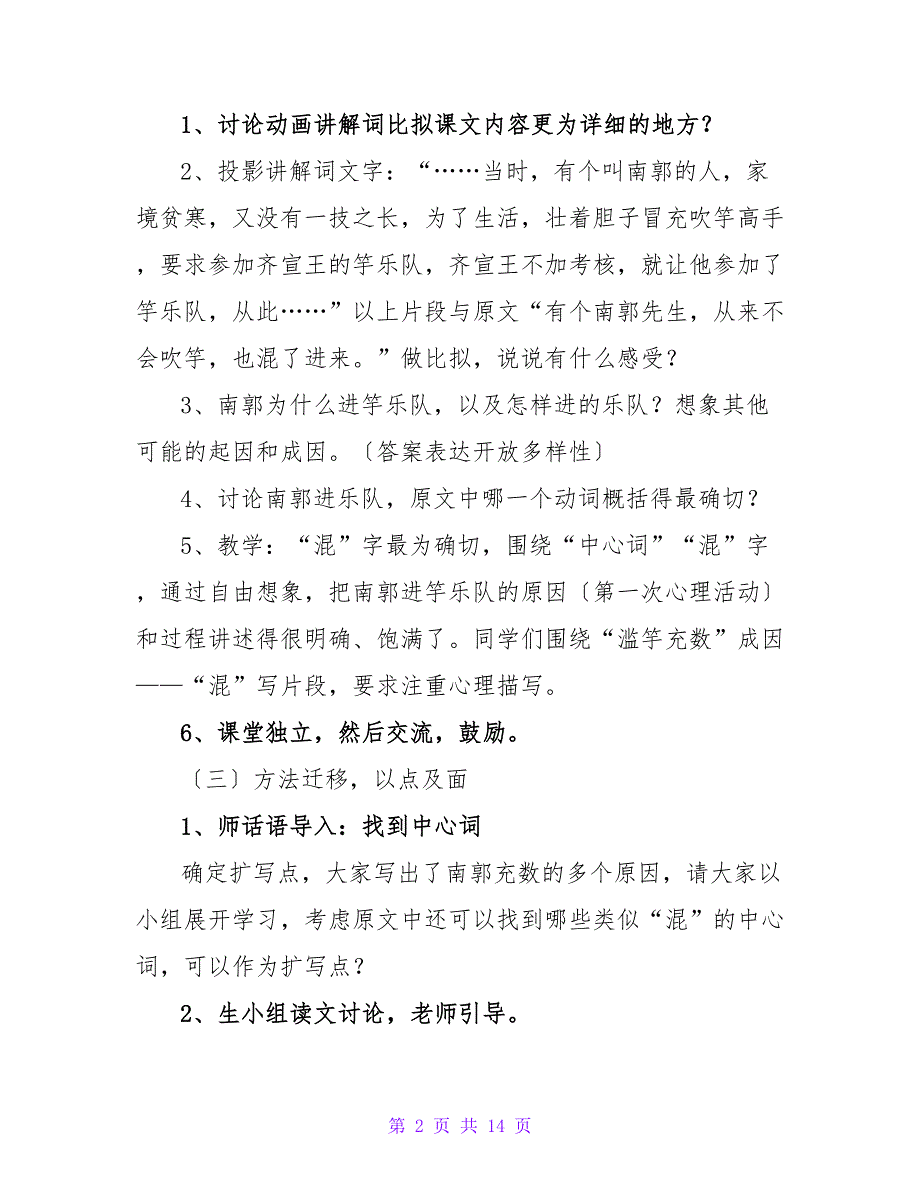 1、讨论动画讲解词比拟课文内容更为详细的地方？
2、投影讲解词文字：“……当时，有个叫南郭的人，家
境贫寒，又没有一技之长，为了生活，壮着胆子冒充吹竽高手
，要求参加齐宣王的竽乐队，齐宣王不加考核，就让他参加了
竽乐队，从此……”以上片段与原文“有个南郭先生，从来不
会吹竽，也混了进来。”做比拟，说说有什么感受？
3、南郭为什么进竽乐队，以及怎样进的乐队？想象其他
可能的起因和成因。〔答案表达开放多样性〕
4、讨论南郭进乐队，原文中哪一个动词概括得最确切？
5、教学：“混”字最为确切，围绕“中心词”“混”字
，通过自由想象，把南郭进竽乐队的原因〔第一次心理活动〕
和过程讲述得很明确、饱满了。同学们围绕“滥竽充数”成因
——“混”写片段，要求注重心理描写。
6、课堂独立，然后交流，鼓励。
〔三〕方法迁移，以点及面
1、师话语导入：找到中心词
确定扩写点，大家写出了南郭充数的多个原因，请大家以
小组展开学习，考虑原文中还可以找到哪些类似“混”的中心
词，可以作为扩写点？
2、生小组读文讨论，老师引导。
第 2 页 共 14 页